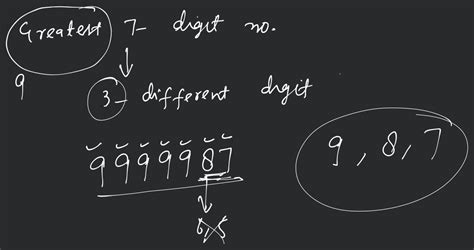 Greatest 7- digit no.
9
3- different digit
9999987
9, 8, 7
6,5